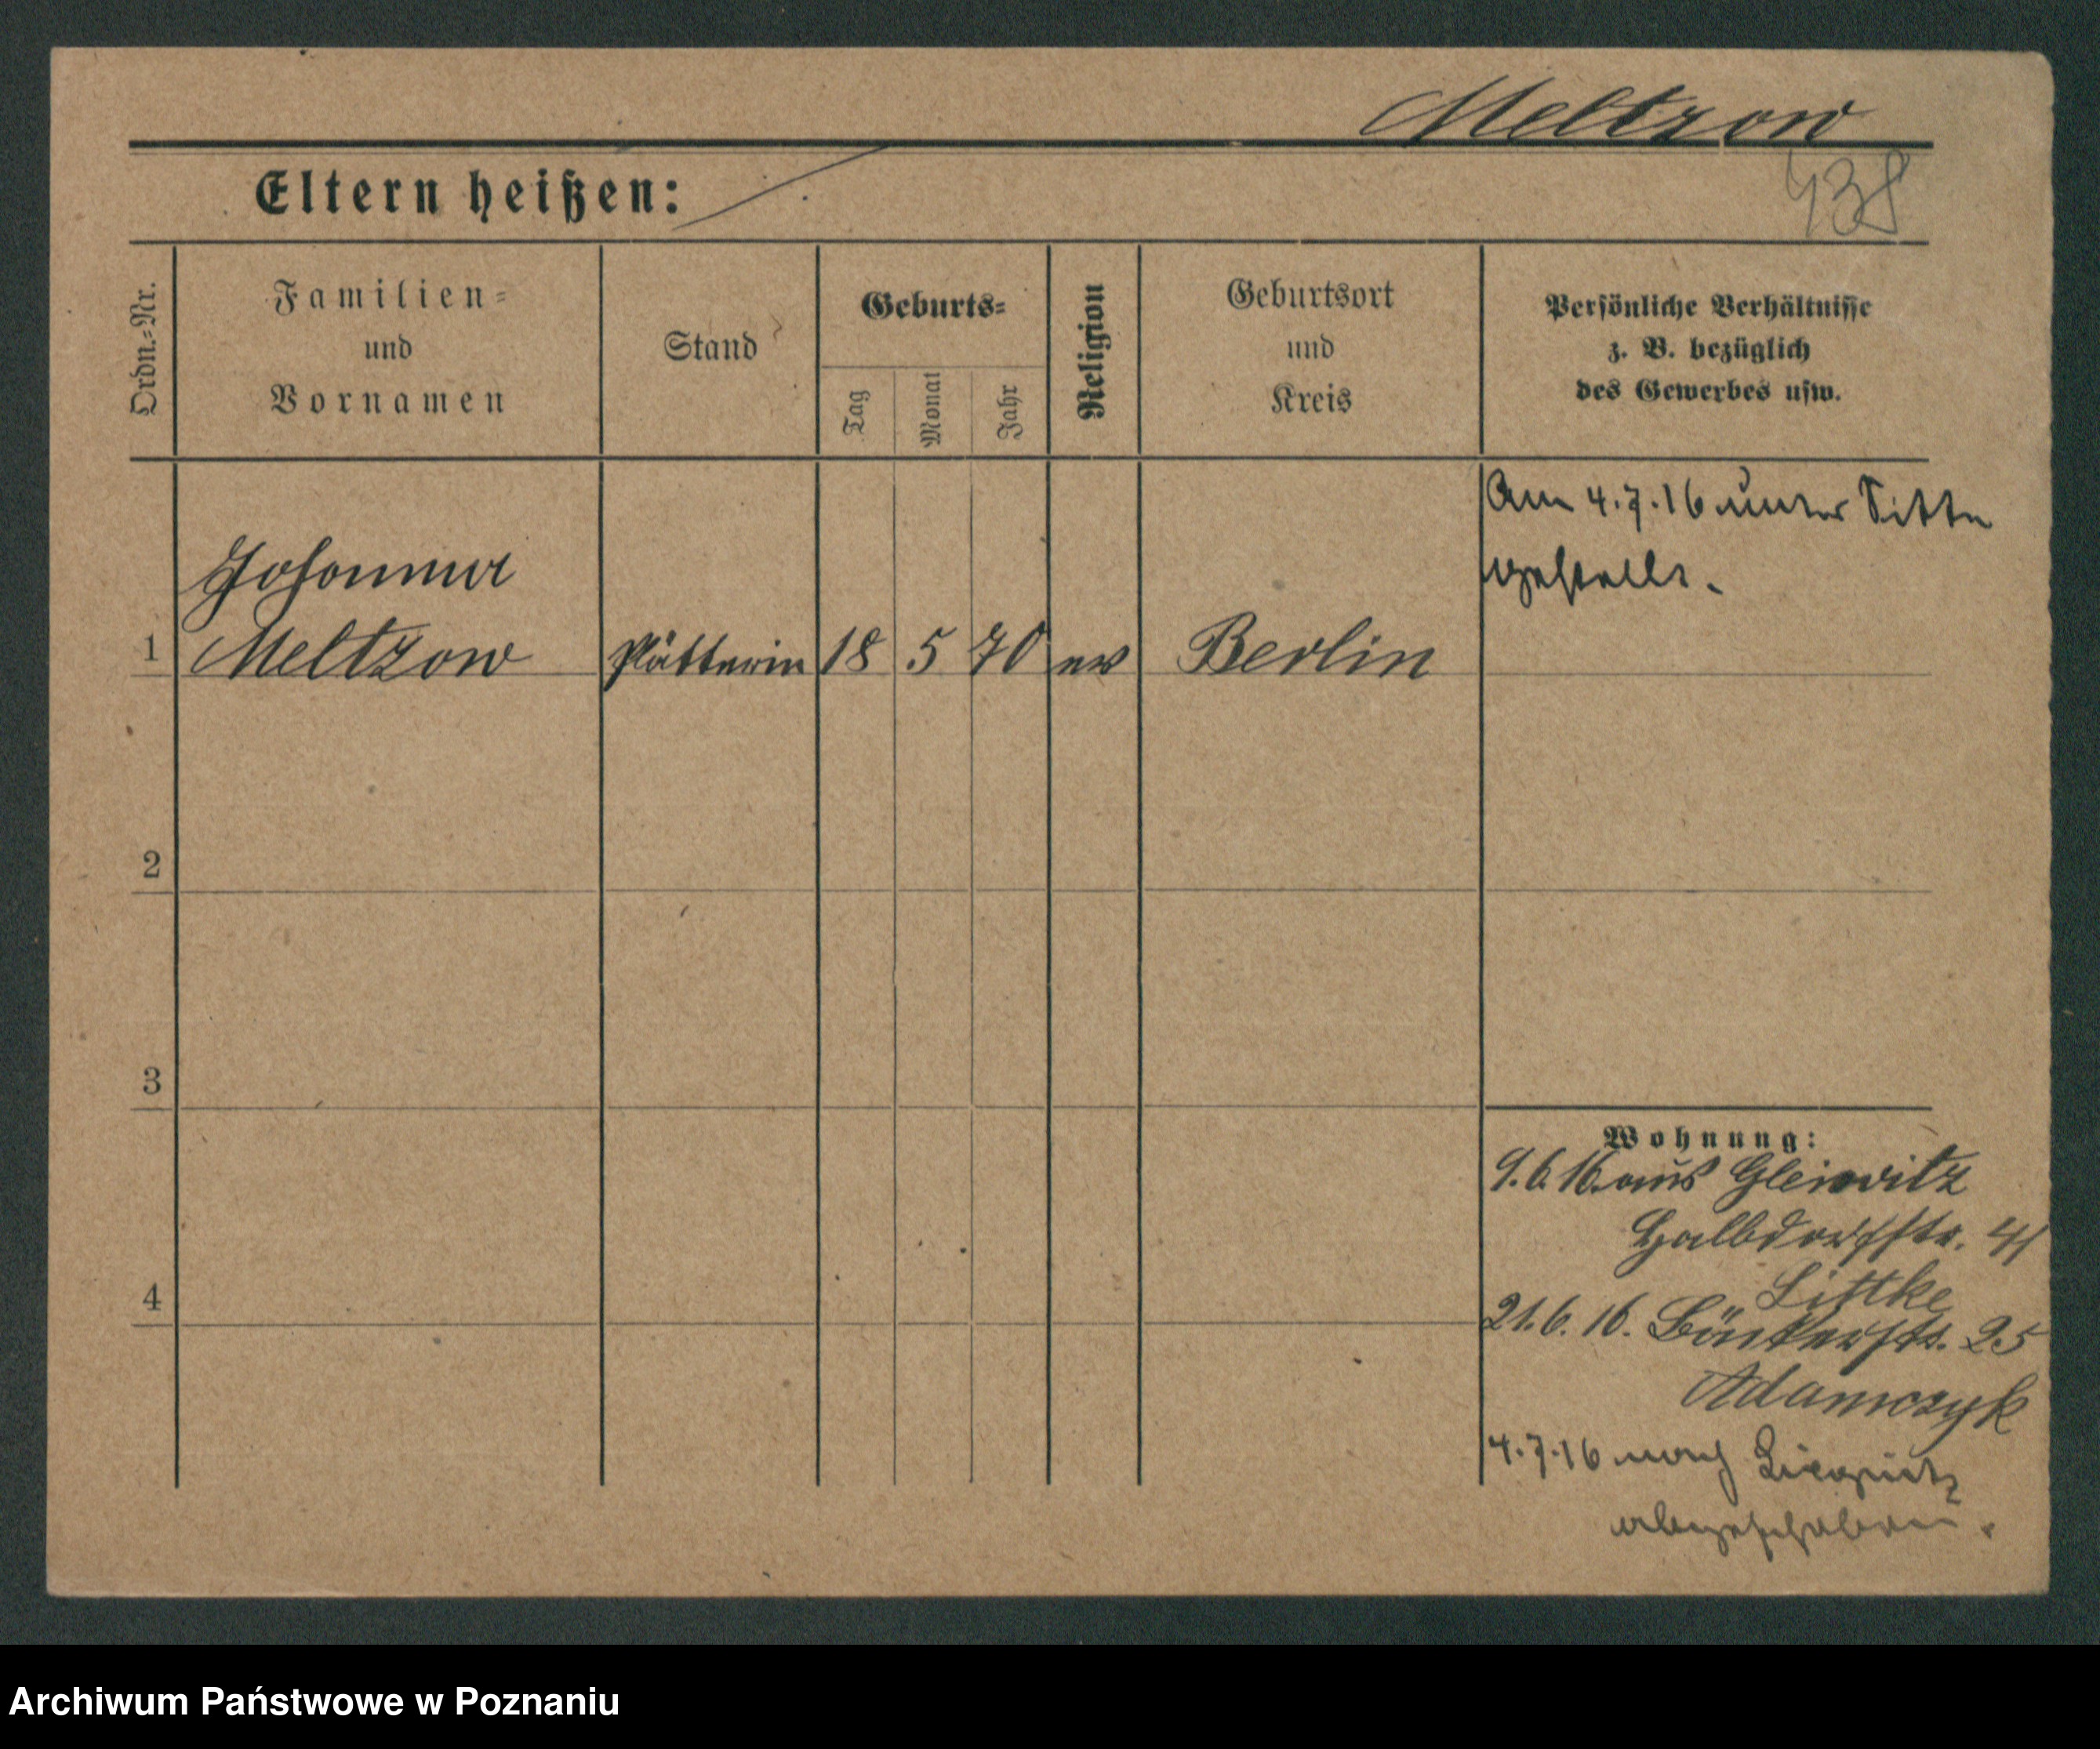 Meltzow
438
Eltern heißen:
Ordn.-Nr.
Familien-
und
Vornamen
Stand
Geburts-
Tag
Monat
Jahr
Religion
Geburtsort
und
Kreis
Persönliche Verhältnisse
z. B. bezüglich
des Gewerbes usw.
Am 4.7.16 unter Sitte
gestellt.
Johanna
1 Meltzow Plätterin 18 5 70 ev Berlin
2
3
Wohnung:
9.6.16. aus Gleiwitz
Halbdorfstr. 41
Littke
4
21.6.16. Bäckerstr. 25
Adamczyk
4.7.16 nach Liegnitz
abgeschoben.
Archiwum Państwowe w Poznaniu